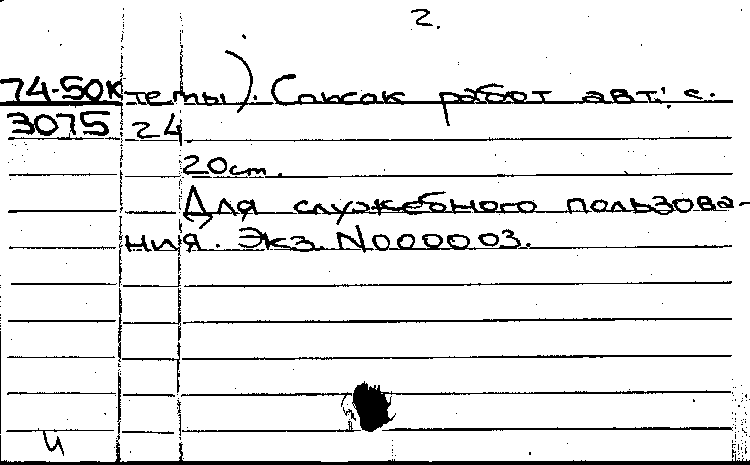 2.
74-50к темы). Список работ авт.: с.
3075 24
20 см.
Для служебного пользова-
ния. Экз. N000003.
и